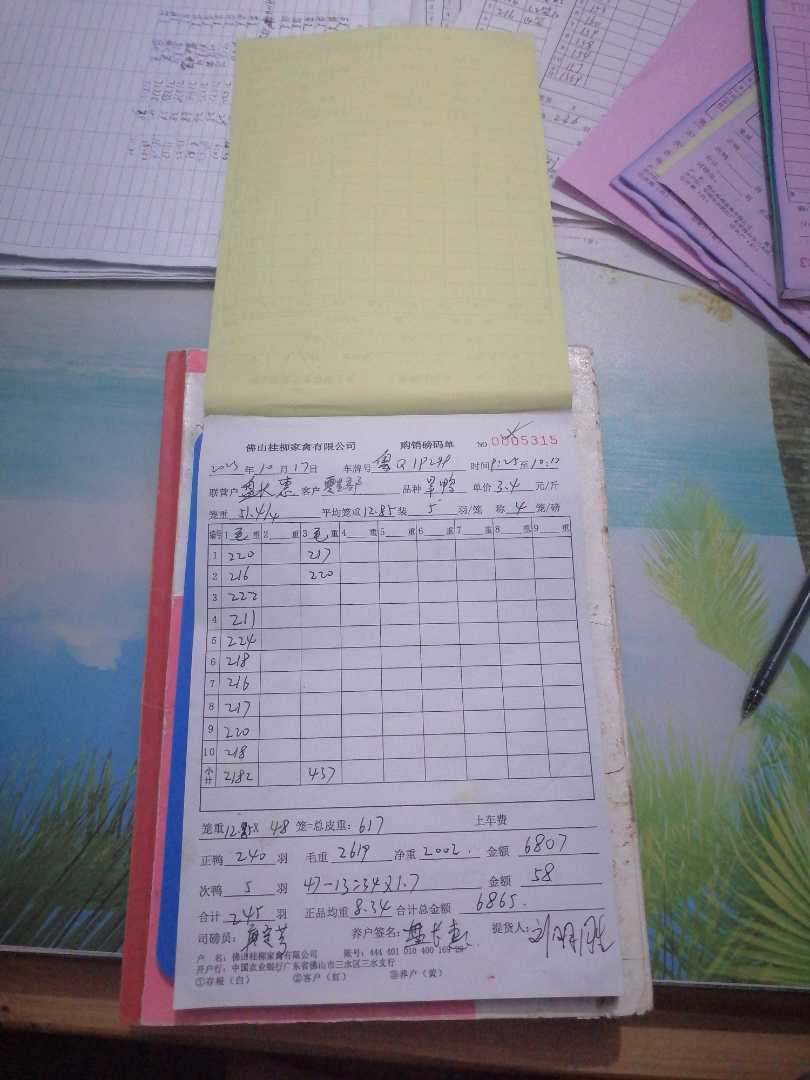 佛山桂柳家禽有限公司 购销磅码单 NO 0005315
2023年10月17日 车牌号 粤Q1P299 时间 9:25至10:10
联营户 盘长惠 客户 品种 旱鸭 单价 3.4 元/斤
笼重 51.4/4 平均笼重 12.85 装 5 羽/笼 称 4 笼/磅
编号 1 毛 重 2 重 3 毛 重 4 重 5 重 6 重 7 重 8 重 9 重
1 220 217
2 216 220
3 222
4 211
5 224
6 218
7 216
8 217
9 220
10 218
小计 2182 437
笼重 12.85× 48 笼=总皮重: 617 上车费
正鸭 240 羽 毛重 2619 净重 2002. 金额 6807
次鸭 5 羽 47-13=34×1.7 金额 58
合计 245 羽 正品均重 8.34 合计总金额 6865.
司磅员: 养户签名: 盘长惠 提货人:
户 名: 佛山桂柳家禽有限公司 账号: 444 401 010 400 169
开户行: 中国农业银行广东省佛山市三水区三水支行
①存根(白) ②客户(红) ③养户(黄)